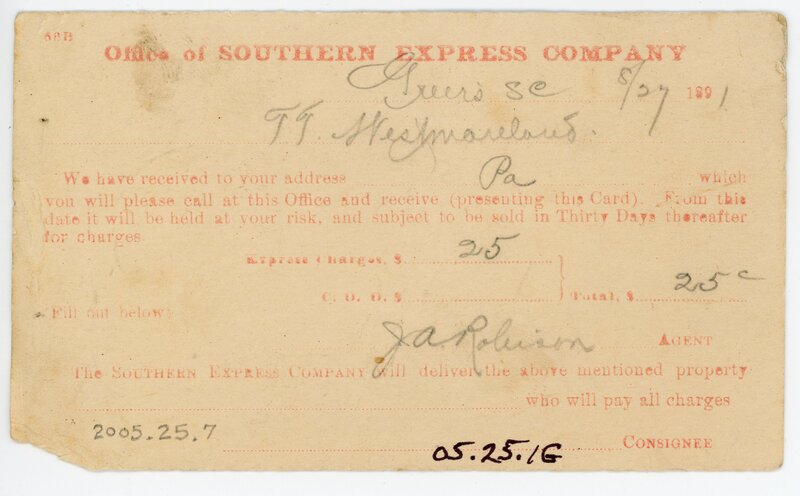 68B
Office of SOUTHERN EXPRESS COMPANY
Greers SC 8/27 1891
T.T. Westmoreland.
We have received to your address Pa which
you will please call at this Office and receive (presenting this Card). From this
date it will be held at your risk, and subject to be sold in Thirty Days thereafter
for charges
Express Charges, $ 25
C. O. D. $ Total, $ 25c
(Fill out below)
J A. Robinson AGENT
The SOUTHERN EXPRESS COMPANY will deliver the above mentioned property
who will pay all charges
2005.25.7
05.25.1G CONSIGNEE